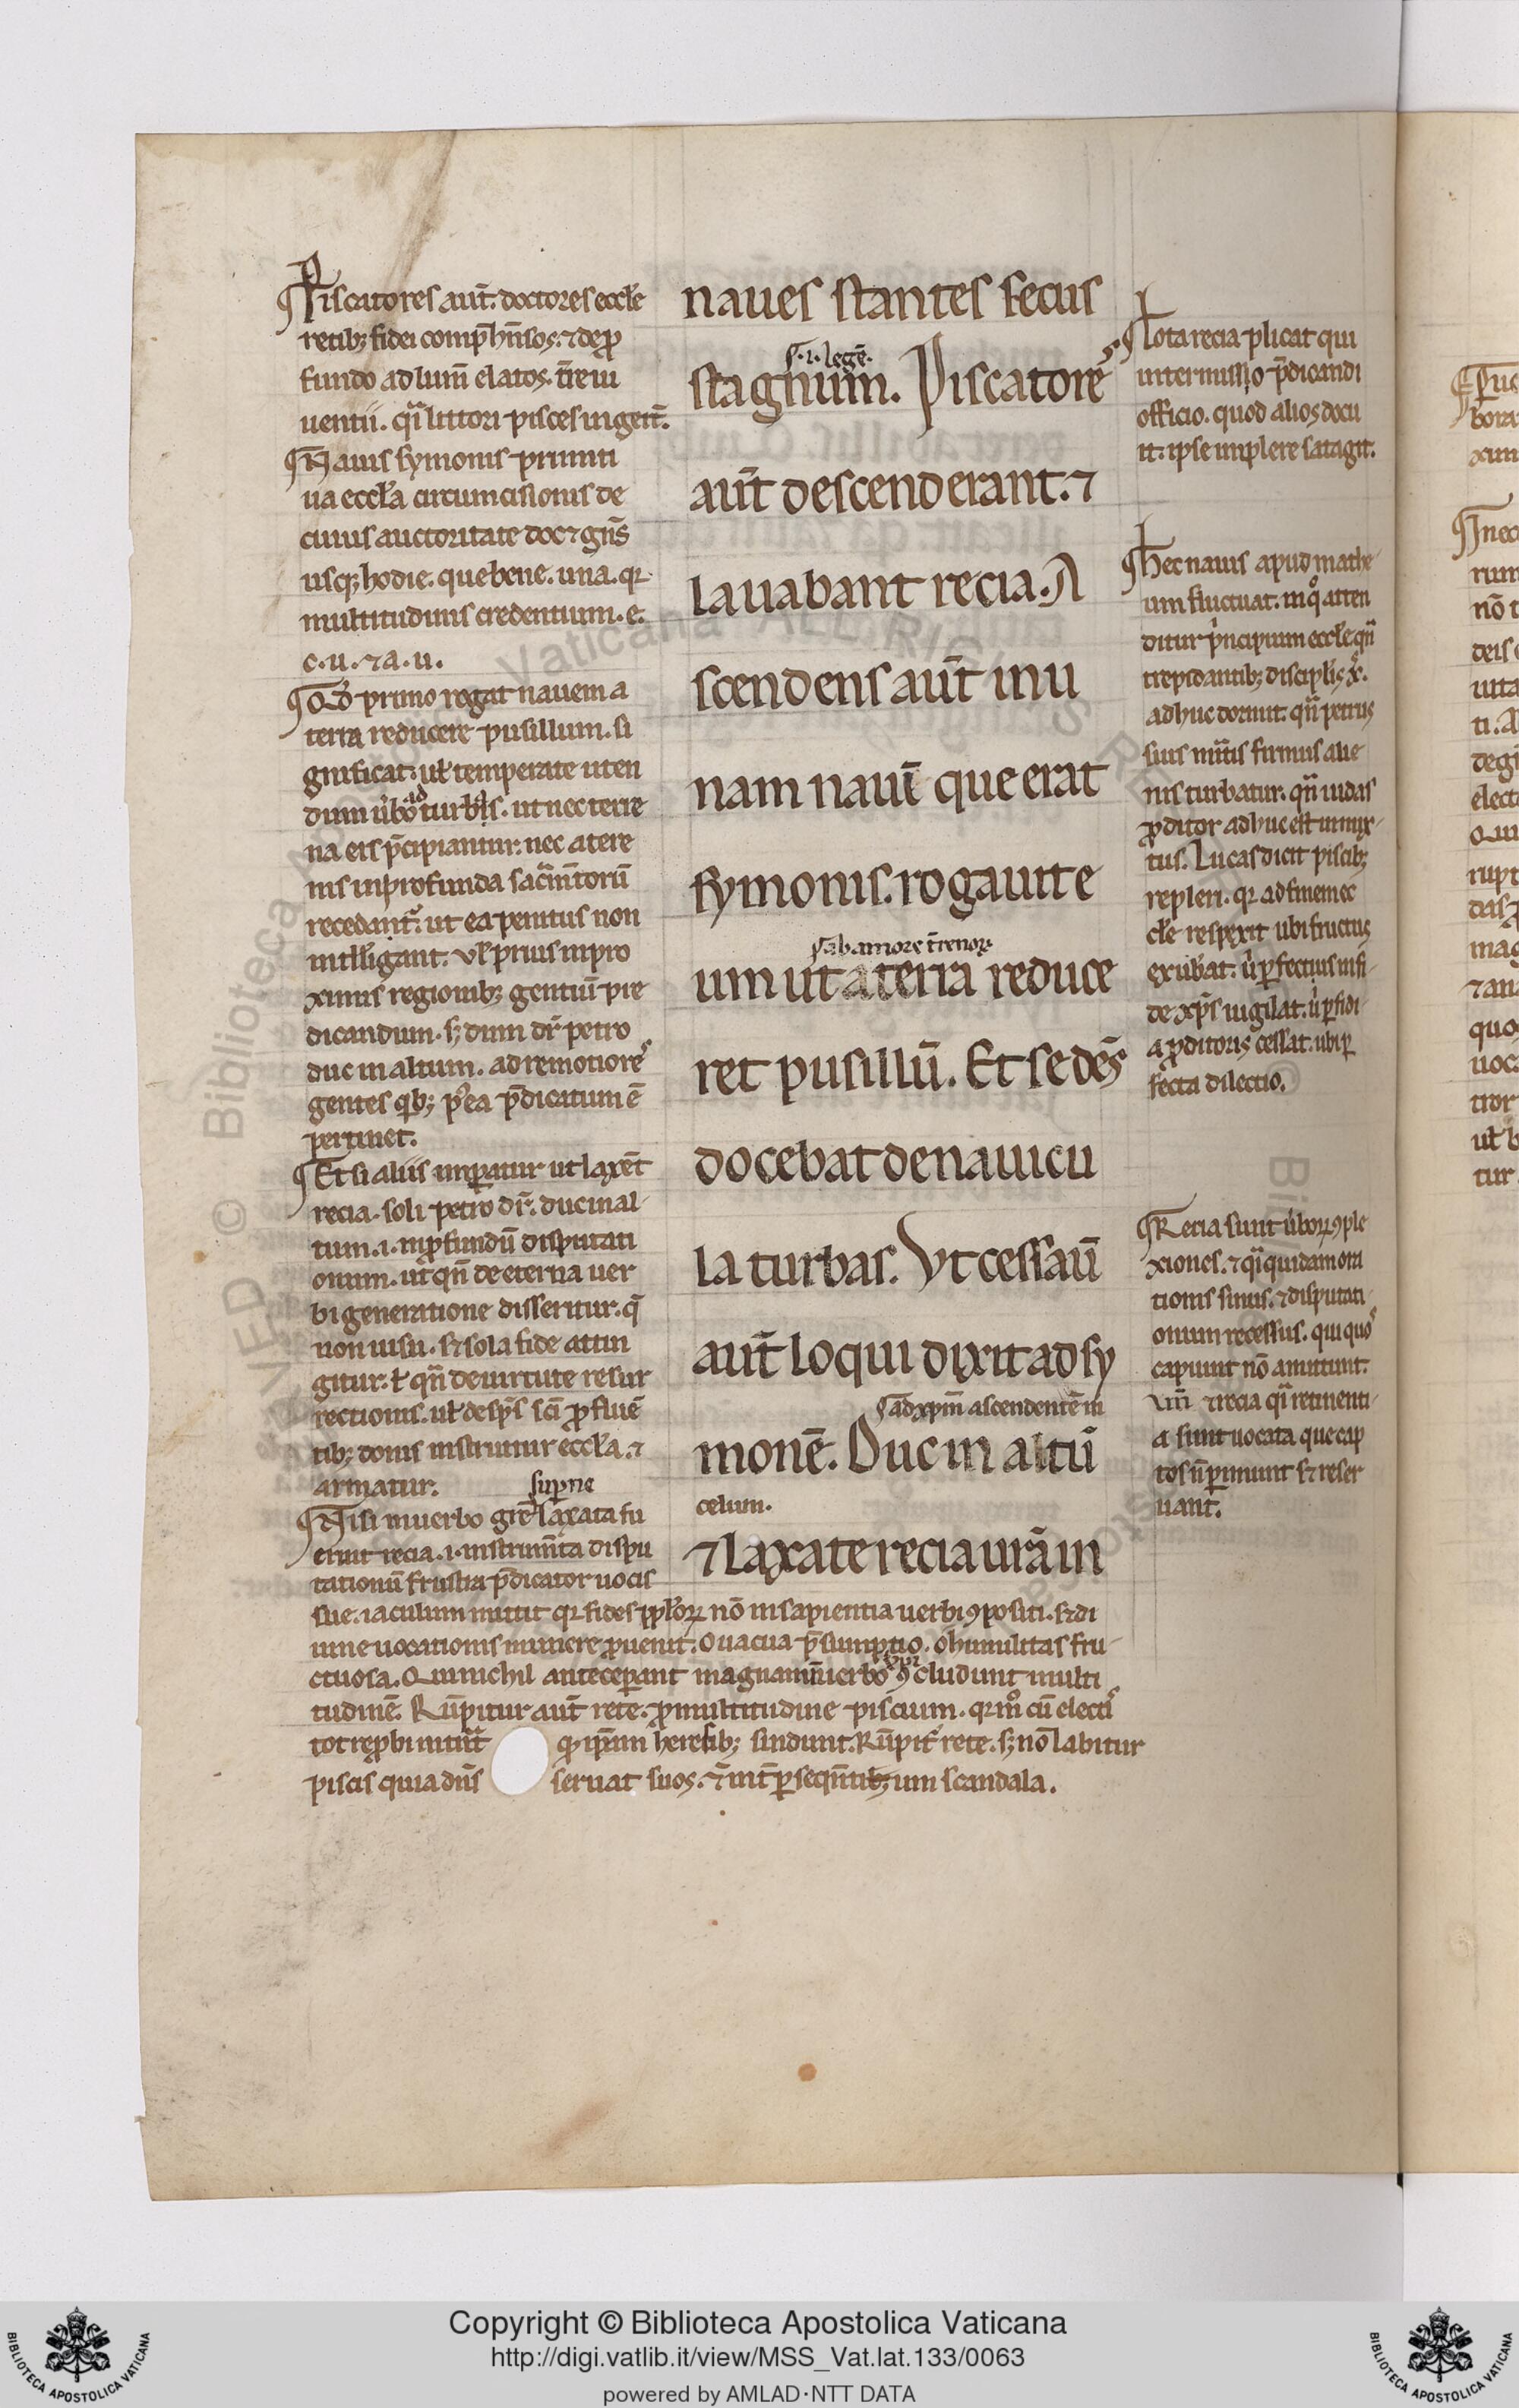 Piscatores aut̄. doctores eccl̄e
retib; fidei comp̄hn̄sos. ⁊ de ꝓ
fundo ad lum̄ elatos. t̄re ui
uentiū. qͣ littori pisces ingerūt̄.
Nauis symonis primiti
ua eccl̄a circumcisionis de
cuius auctoritate doc& gn̄s
usq; hodie. que bene. una. qr
multitudinis credentium. e.
c. u. ⁊ a. u.
Qd̄ primo rogat nauem a
terra reducere pusillum. si
gnificat. ul̄ temperate uten
dum ůbo ad turbas. ut nec terre
na eis p̄cipiantur. nec a terre
nis in profunda sacͣm̄torū
recedant̃. ut ea penitus non
intell̄igant. Vl̄ prius in pro
ximis regionib; gentiū pre
dicandum. s; dum dr̄ petro
duc in altum. ad remotiores
gentes qͥb; p̾ea p̄dicatum ē
pertinet.
Et si aliis imꝑatur ut laxēt
recia. soli petro dr̄. duc in al
tum. i. in ꝓfundū disputati
onum. ut qn̄ de eterna uer
bi generatione disseritur. q̄
non uisu. s& sola fide attin
gitur. t̄ qn̄ de uirtute resur
rectionis. ul̄ de sp̄s sc̄i ꝓfluē
tib; donis instruitur eccl̄a. ⁊
armatur.
Nisi in uerbo gr̄e superne laxata fu
erint recia. i. instrum̄ta dispu
tationū frustra p̄dicator uocis
sue. iaculum mittit qr fides ppl̄oꝝ nō in sapientia uerbi ꝯpositi. s& di
uine uocationis munere ꝓuenit. O uacua p̄sumptio. o humilitas fru
ctuosa. Qui nichil antecep̄ant magnam in uerbo xp̄i ꝯcludunt multi
tudinē. Rūpitur aut̄ rete. ꝓ multitudine piscium. qr mͦ cū electis
tot reꝓbi intn̄t qͥ ip̄am heresib; sindunt. Rūpit̾ rete. s; nō labitur
piscis quia dn̄s seruat suos. ⁊ īnt̄ ꝑseqn̄tium scandala.
naues stantes secus
s. i. legē.
stagnum. Piscatores
aut̄ descenderant. ⁊
lauabant recia. A
scendens aut̄ in u
nam nauē que erat
symonis. rogauit e
s. ab amore t̄renoꝝ
um ut a terra reduce
ret pusillū. Et sedēs
docebat de nauicu
la turbas. Vt cessau̅
aut̄ loqui dixit ad sy
s. ad xp̄m ascendentē in
monē. Duc in altū
celum.
⁊ laxate recia ur̄a in
Lota recia plicat qui
intermisso p̄dicandi
officio. quod alios docu
it. ipse implere satagit.
Hec nauis apud mathe
um fluctuat. in qͦ atten
ditur p̾ncipium eccl̄e qn̄
trepidantib; discipl̄is x̄.
adhuc dormit. qn̄ petrus
suis mīt̄is firmus alie
nis turbatur. qn̄ iudas
ꝓditor adhuc est inmix
tus. Lucas dicit piscib;
repleri. qr ad finem ec
cl̄e respexit ubi fructus
exub̄at. ů ꝑfectius in fi
de xp̄s uigilat. ů ꝑfidi
a ꝓditoris cessat. ubi ꝑ
fecta dilectio.
Recia sunt ůboꝝ ꝯple
xiones. ⁊ qͣ quidam ora
tionis sinus. ⁊ disputati
onum recessus. qui quos
capiunt nō amittunt.
Vn̄ ⁊ recia qͣ retinenti
a sunt uocata que cap
tos n̄ ꝑimunt s& reser
uant.
Copyright © Biblioteca Apostolica Vaticana
http://digi.vatlib.it/view/MSS_Vat.lat.133/0063
powered by AMLAD·NTT DATA
BIBLIOTECA APOSTOLICA VATICANA
BIBLIOTECA APOSTOLICA VATICANA